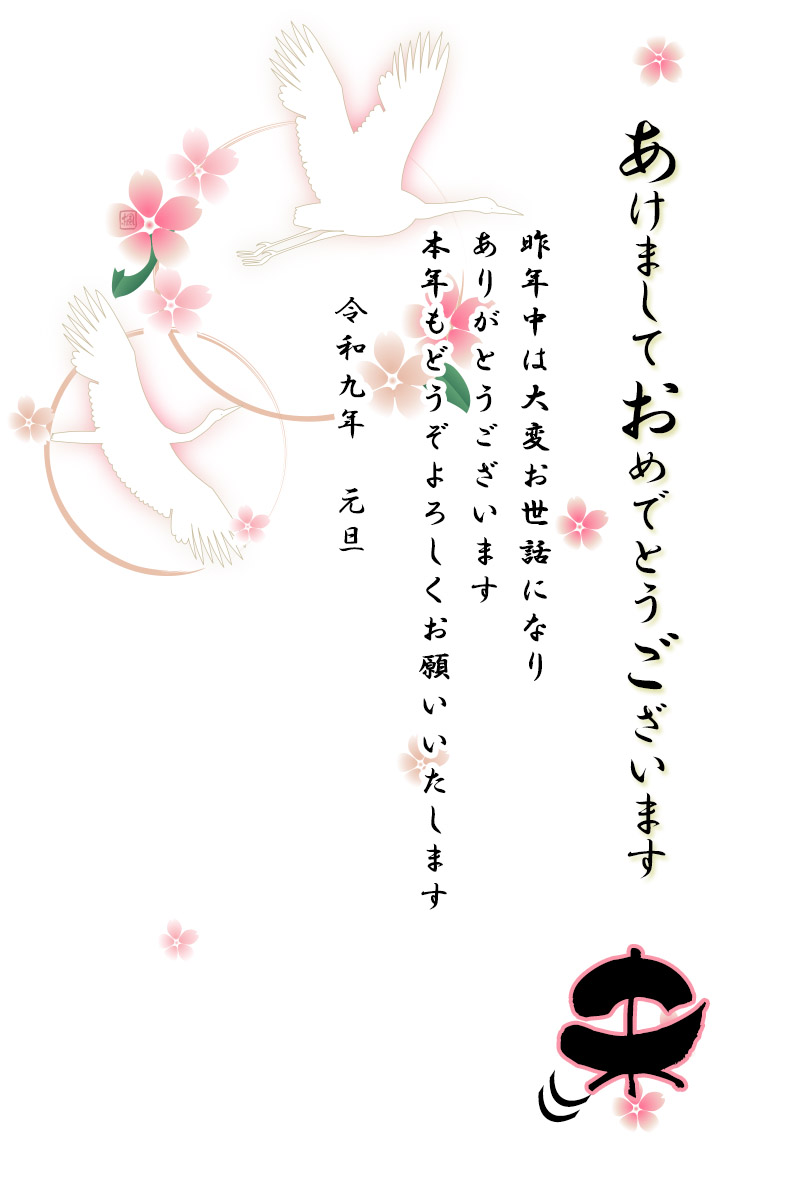 あけましておめでとうございます
昨年中は大変お世話になり
ありがとうございます
本年もどうぞよろしくお願いいたします
令和九年 元旦